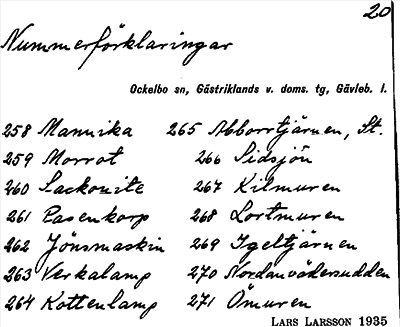 20
Nummerförklaringar
Ockelbo sn, Gästriklands v. doms. tg, Gävleb. l.
258 Mannika
259 Morrot
260 Lackonite
261 Pasenkorp
262 Jönsmaskin
263 Verkalamp
264 Kottenlamp
265 Abborrtjärnen, St.
266 Sidsjön
267 Kilmuren
268 Lortmuren
269 Igeltjärnen
270 Nordanvädersudden
271 Ömuren
LARS LARSSON 1935